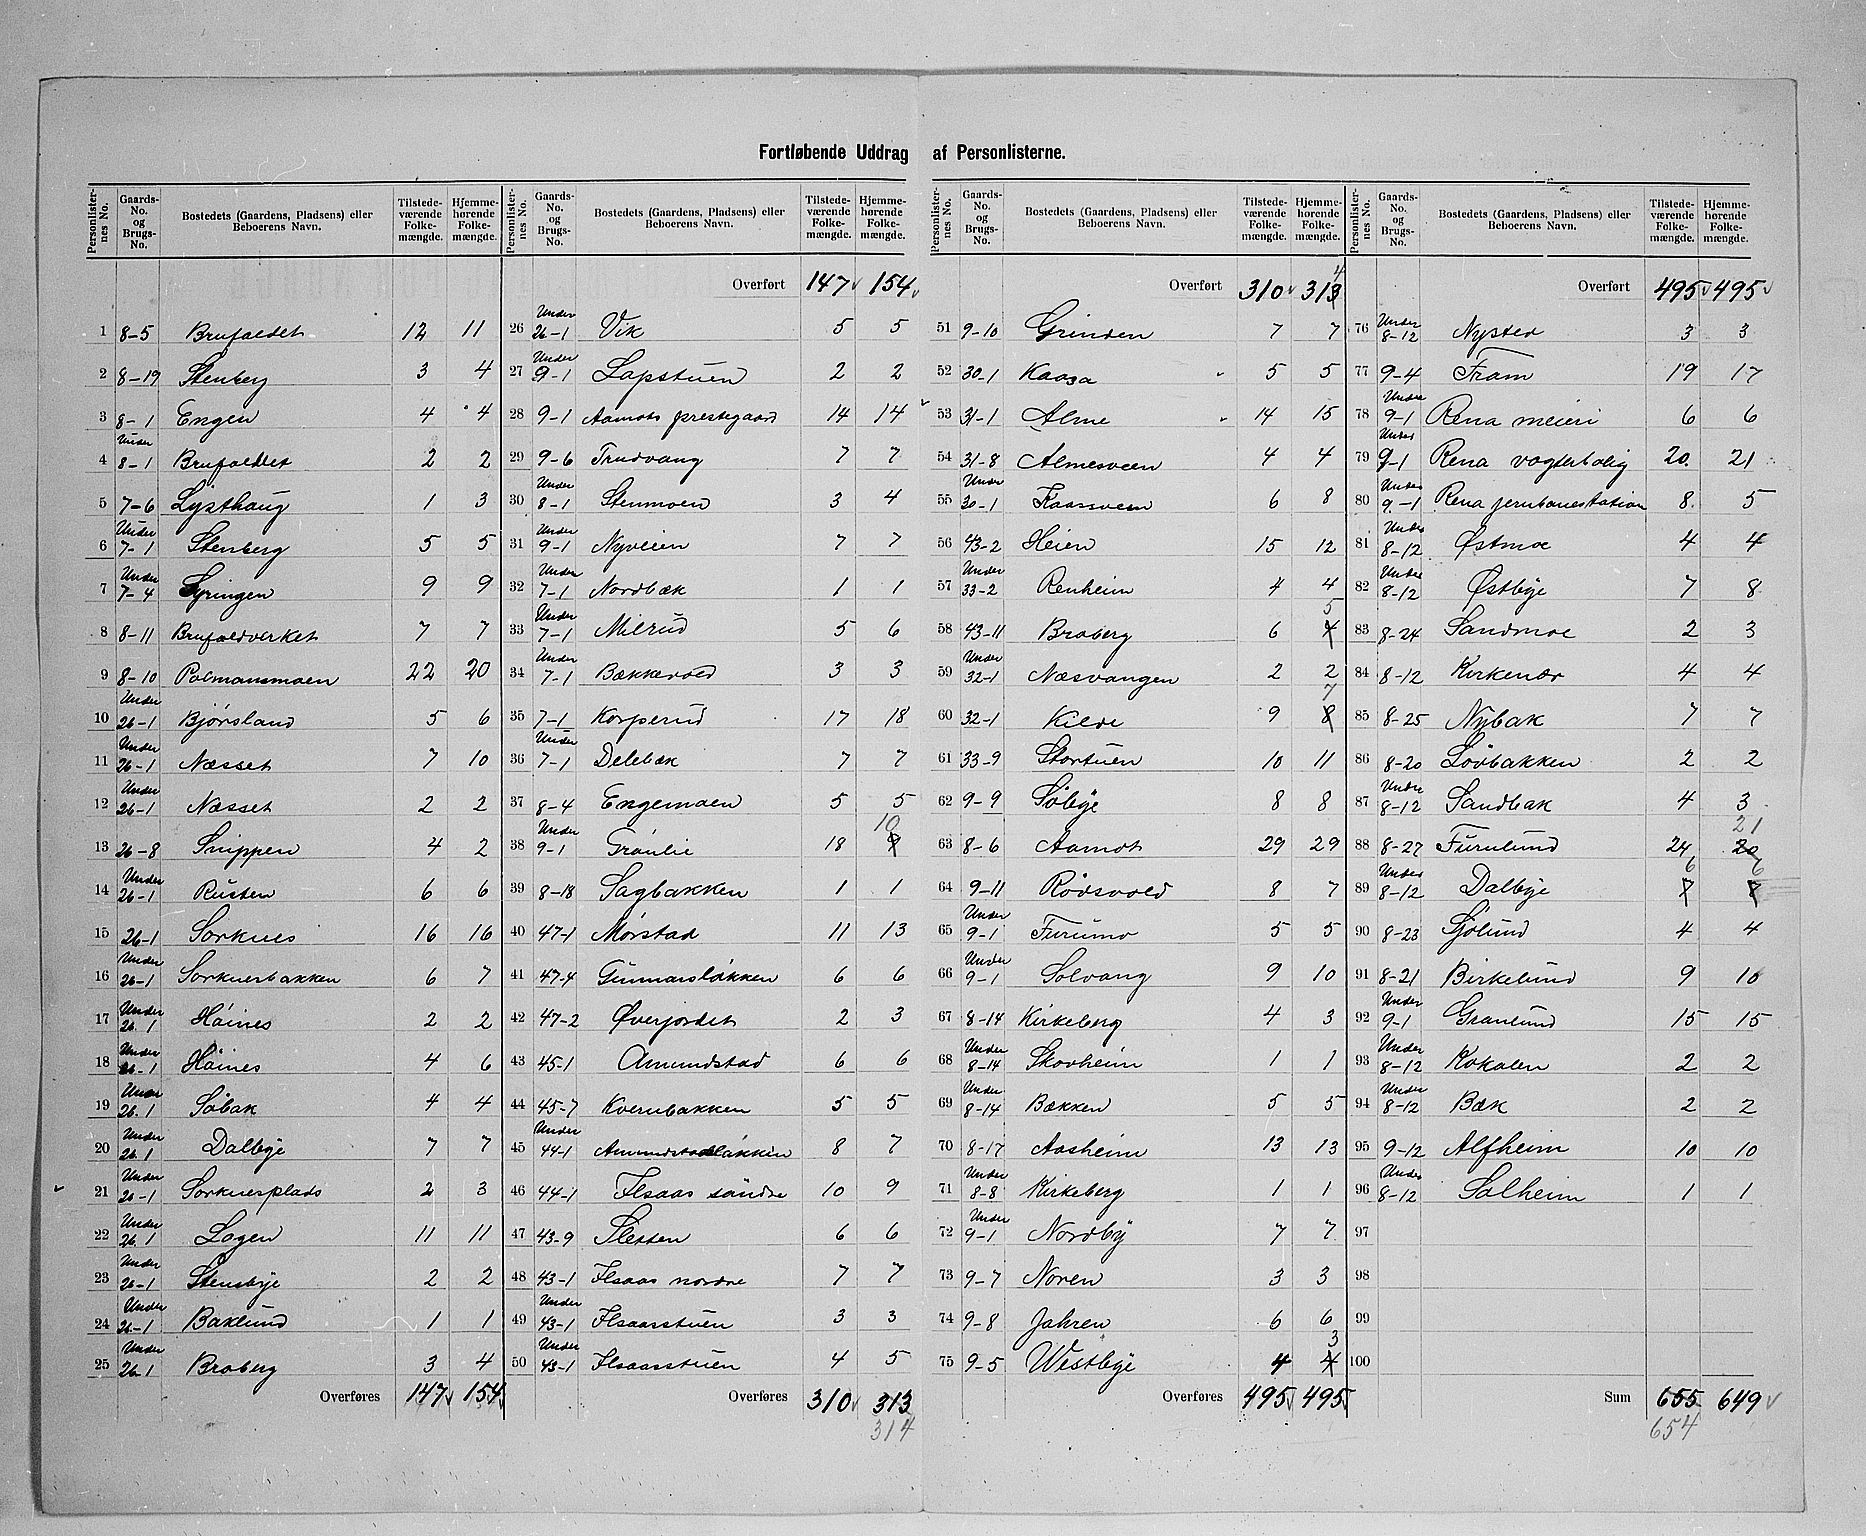 Fortløbende Uddrag af Personlisterne.
Personlisternes No. Gaards-No. og Brugs-No. Bostedets (Gaardens, Pladsens) eller Beboerens Navn. Tilstedeværende Folkemængde. Hjemmehørende Folkemængde.
1 8-5 Brufaldet 12 11
2 8-19 Stenberg 3 4
3 8-1 Engen 4 4
4 Under 8-1 Brufaldet 2 2
5 7-6 Lysthaug 1 3
6 Under 7-1 Stenberg 5 5
7 Under 7-4 Syringen 9 9
8 8-11 Brufoldverket 7 7
9 8-10 Polmansmoen 22 20
10 Under 26-1 Bjørsland 5 6
11 Under 26-1 Næsset 7 10
12 Under 26-1 Næsset 2 2
13 26-8 Snippen 4 2
14 Under 26-1 Rusten 6 6
15 26-1 Sorknes 16 16
16 Under 26-1 Sorknesbakken 6 7
17 Under 26.1 Høines 2 2
18 Under 26-1 Høines 4 6
19 Under 26.1 Søbak 4 4
20 Under 26.1 Dalbye 7 7
21 Under 26-1 Sorknesplads 2 3
22 Under 26.1 Logen 11 11
23 Under 26-1 Stensbye 2 2
24 Under 26-1 Baklund 1 1
25 Under 26.1 Broberg 3 4
Overføres 147 154
Personlisternes No. Gaards-No. og Brugs-No. Bostedets (Gaardens, Pladsens) eller Beboerens Navn. Tilstedeværende Folkemængde. Hjemmehørende Folkemængde.
Overført 147 154
26 Under 26-1 Vik 5 5
27 Under 9-1 Lapstuen 2 2
28 9-1 Aamots prestegaard 14 14
29 9-6 Trudvang 7 7
30 Under 8-1 Stenmoen 3 4
31 Under 9-1 Nyveien 7 7
32 Under 7-1 Nordbæk 1 1
33 Under 7-1 Milrud 5 6
34 Under 7-1 Bækkevold 3 3
35 7-1 Korperud 17 18
36 Under 7-1 Delebæk 7 7
37 8-4 Engemoen 5 5
38 Under 9-1 Grønlie 18 10 9
39 8-18 Sagbakken 1 1
40 47-1 Mørstad 11 13
41 47-4 Gunnarsløkken 6 6
42 47-2 Øverjordet 2 3
43 45-1 Amundstad 6 6
44 45-7 Kvernbakken 5 5
45 Under 44-1 Amundstadløkken 8 7
46 44-1 Ilsaas søndre 10 9
47 43-9 Sletten 6 6
48 43-1 Ilsaas nordre 7 7
49 Under 43-1 Ilsaasstuen 3 3
50 Under 43-1 Ilsaasstuen 4 5
Overføres 310 313
314
Personlisternes No. Gaards-No. og Brugs-No. Bostedets (Gaardens, Pladsens) eller Beboerens Navn. Tilstedeværende Folkemængde. Hjemmehørende Folkemængde.
Overført 310 313 4
51 9-10 Grinden 7 7
52 30-1 Kaasa 5 5
53 31-1 Alme 14 15
54 31-8 Almesveen 4 4
55 Under 30-1 Kaassveen 6 8
56 43-2 Heien 15 12
57 Under 33-2 Renheim 4 4
58 43-11 Broberg 6 5 4
59 Under 32-1 Næsvangen 2 2
60 32-1 Kilde 9 7 8
61 33-9 Stortuen 10 11
62 9-9 Søbye 8 8
63 8-6 Aamot 29 29
64 9-11 Rødsvold 8 7
65 Under 9-1 Furumo 5 5
66 Under 9-1 Solvang 9 10
67 8-14 Kirkeberg 4 3
68 Under 8-14 Skovheim 1 1
69 Under 8-14 Bækken 5 5
70 8-17 Aasheim 13 13
71 Under 8-8 Kirkeberg 1 1
72 Under 9-1 Nordby 7 7
73 9-7 Noren 3 3
74 9-8 Jahren 6 6
75 9-5 Westbye 4 3 4
Overføres 495 495
Personlisternes No. Gaards-No. og Brugs-No. Bostedets (Gaardens, Pladsens) eller Beboerens Navn. Tilstedeværende Folkemængde. Hjemmehørende Folkemængde.
Overført 495 495
76 Under 8-12 Nysted 3 3
77 9-4 Fram 19 17
78 Under 9-1 Rena meieri 6 6
79 Under 9-1 Rena vogterbolig 20. 21
80 Under 9-1 Rena jernbanestation 8. 5
81 Under 8-12 Østmoe 4 4
82 Under 8-12 Østbye 7 8
83 8-24 Sandmoe 2 3
84 8-12 Kirkenær 4 4
85 8-25 Nybak 7 7
86 8-20 Løvbakken 2 2
87 Under 8-12 Sandbak 4 3
88 8-27 Furulund 24 21 20
89 Under 8-12 Dalbye 6 7 6 8
90 8-23 Sjølund 4 4
91 8-21 Birkelund 9 10
92 Under 9-1 Granlund 15 15
93 Under 8-12 Kokalen 2 2
94 Under 8-12 Bæk 2 2
95 9-12 Alfheim 10 10
96 Under 8-12 Solheim 1 1
97
98
99
100
Sum 655 649
654